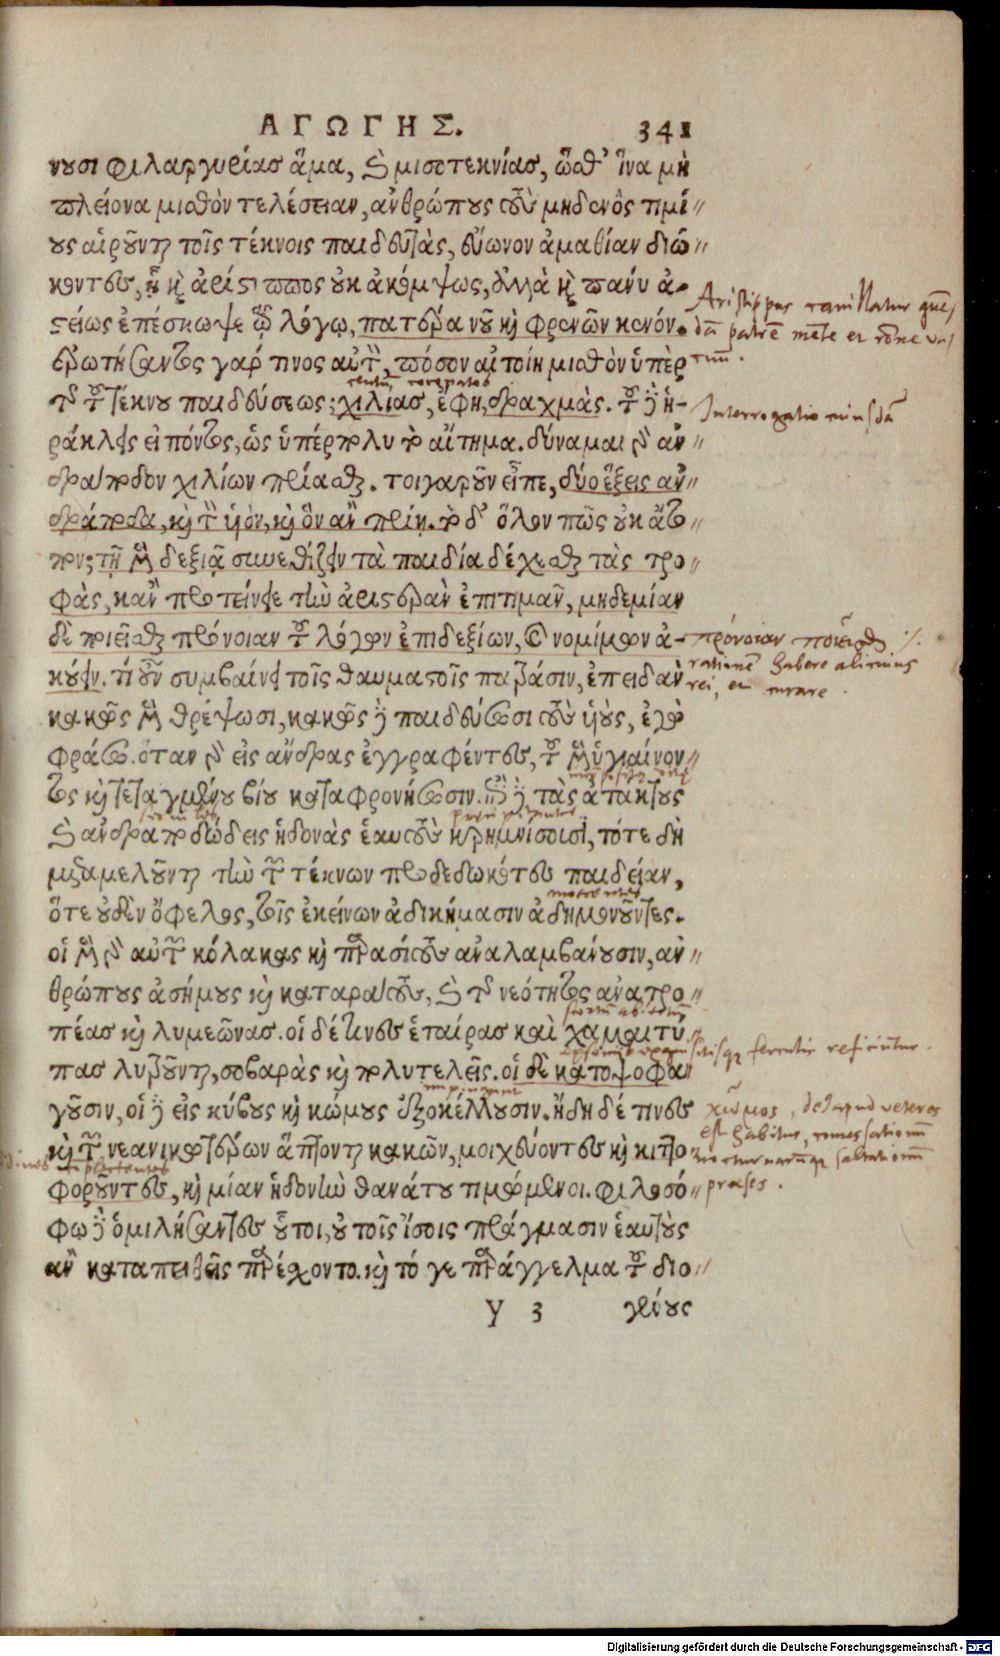 ΑΓΩΓΗΣ. 341
νουσι φιλαργυρίας ἅμα, καὶ μισοτεκνίας, ὥσθ' ἵνα μὴ
πλείονα μισθὸν τελέσειαν, ἀνθρώπους τοὺς μηδενὸς τιμί〃
ους αἱροῦνται τοῖς τέκνοις παιδευτὰς, εὔωνον ἀμαθίαν διώ〃
κοντες, ᾗ καὶ ἀρίστιππος οὐκ ἀκόμψως, ἀλλὰ καὶ πάνυ ἀ-
στείως ἐπέσκωψε τῷ λόγῳ, πατέρα νοῦ καὶ φρενῶν κενόν.
ἐρωτήσαντος γάρ τινος αὐτὸν, πόσον αἰτοίη μισθὸν ὑπὲρ
τῆς τοῦ τέκνου παιδεύσεως; χιλίας, ἔφη, δραχμάς. τοῦ δὲ ἡ-
ράκλεις εἰπόντος, ὡς ὑπέρπολυ τὸ αἴτημα. δύναμαι γὰρ ἀν〃
δράποδον χιλίων πρίασθαι. τοιγαροῦν εἶπε, δύο ἕξεις ἀν〃
δράποδα, καὶ τὸν υἱόν, καὶ ὃν ἂν πρίῃ. τὸ δ' ὅλον πῶς οὐκ ἄτο〃
πον; τῇ μὲν δεξιᾷ συνεθίζειν τὰ παιδία δέχεσθαι τὰς τρο〃
φὰς, κἂν προτείνειε τὴν ἀριστερὰν ἐπιτιμᾶν, μηδεμίαν
δὲ ποιεῖσθαι πρόνοιαν τοῦ λόγων ἐπιδεξίων, καὶ νομίμων ἀ-
κούειν. τί οὖν συμβαίνει τοῖς θαυμαστοῖς πατράσιν, ἐπειδὰν
κακῶς μὲν θρέψωσι, κακῶς δὲ παιδεύσωσι τοὺς υἱούς, ἐγὼ
φράσω. ὅταν γὰρ εἰς ἄνδρας ἐγγραφέντες, τοῦ μὲν ὑγιαίνον〃
τος καὶ τεταγμένου βίου καταφρονήσωσιν. ἐπὶ δὲ τὰς ἀτάκτους
καὶ ἀνδραποδώδεις ἡδονὰς ἑαυτοὺς κρημνίσωσι, τότε δὴ
μεταμελοῦνται τὴν τῶν τέκνων προδεδωκότες παιδείαν,
ὅτε οὐδὲν ὄφελος, τοῖς ἐκείνων ἀδικήμασιν ἀδημονοῦντες.
οἱ μὲν γὰρ αὐτῶν κόλακας καὶ παρασίτους ἀναλαμβάνουσιν, ἀν〃
θρώπους ἀσήμους καὶ καταράτους, καὶ τῆς νεότητος ἀνατρο〃
πέας καὶ λυμεῶνας. οἱ δέ τινες ἑταίρας καὶ χαμαιτύ〃
πας λυτροῦνται, σοβαρὰς καὶ πολυτελεῖς. οἱ δὲ κατοψοφα〃
γοῦσιν, οἱ δὲ εἰς κύβους καὶ κώμους ἐξοκέλλουσιν. ἤδη δέ τινες
καὶ τῶν νεανικωτέρων ἅπτονται κακῶν, μοιχεύοντες καὶ κιττο〃
φοροῦντες, καὶ μίαν ἡδονὴν θανάτου τιμώμενοι. φιλοσό〃
φῳ δὲ ὁμιλήσαντες οὗτοι, οὐ τοῖς ἴσοις πράγμασιν ἑαυτοὺς
ἂν καταπειθεῖς παρέχοντο. καὶ τό γε παράγγελμα τοῦ διο〃
y 3 γένους
Aristippus
patrē
Interrogatio cuiusdā
πρόνοιαν ποιεῖσθαι
rationē habere alicuius
rei, et curare.
κῶμος, apud veteres
Digitalisierung gefördert durch die Deutsche Forschungsgemeinschaft - DFG